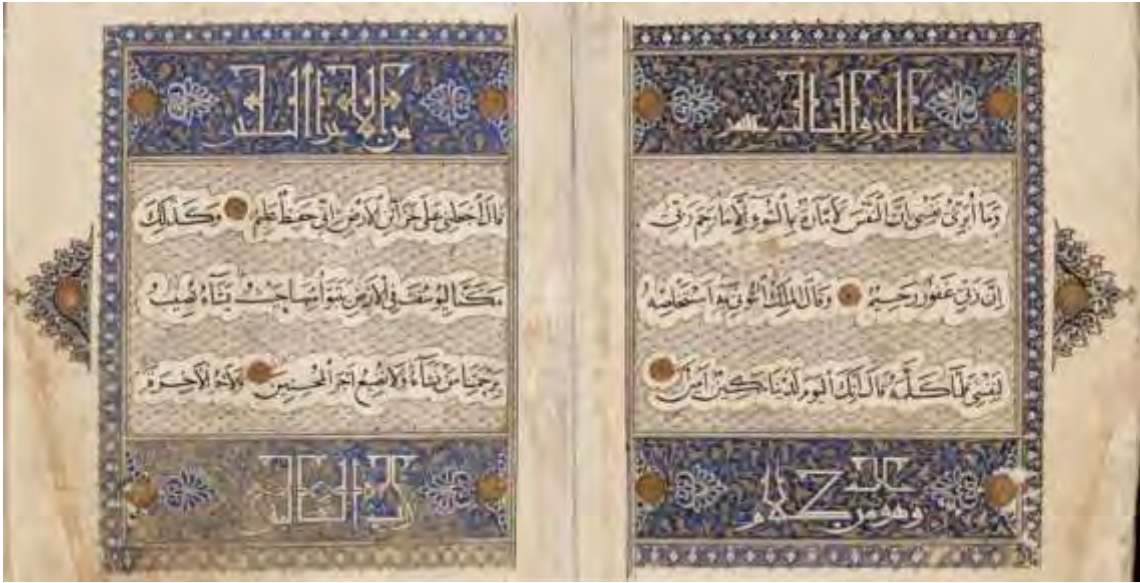 الجزو الثالث عشر
وَمَا أُبَرِّئُ نَفْسِي إِنَّ النَّفْسَ لَأَمَّارَةٌ بِالسُّوءِ إِلَّا مَا رَحِمَ رَبِّي
إِنَّ رَبِّي غَفُورٌ رَحِيمٌ وَقَالَ الْمَلِكُ ائْتُونِي بِهِ أَسْتَخْلِصْهُ
لِنَفْسِي فَلَمَّا كَلَّمَهُ قَالَ إِنَّكَ الْيَوْمَ لَدَيْنَا مَكِينٌ أَمِينٌ
وهو من كلام
من الاجزا الثلثين
قَالَ اجْعَلْنِي عَلَى خَزَائِنِ الْأَرْضِ إِنِّي حَفِيظٌ عَلِيمٌ وَكَذَلِكَ
مَكَّنَّا لِيُوسُفَ فِي الْأَرْضِ يَتَبَوَّأُ مِنْهَا حَيْثُ يَشَاءُ نُصِيبُ
بِرَحْمَتِنَا مَنْ نَشَاءُ وَلَا نُضِيعُ أَجْرَ الْمُحْسِنِينَ وَلَأَجْرُ الْآخِرَةِ
رب العالمين